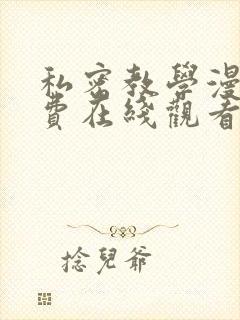 私密教學漫
費在綫觀看
捻兒爺